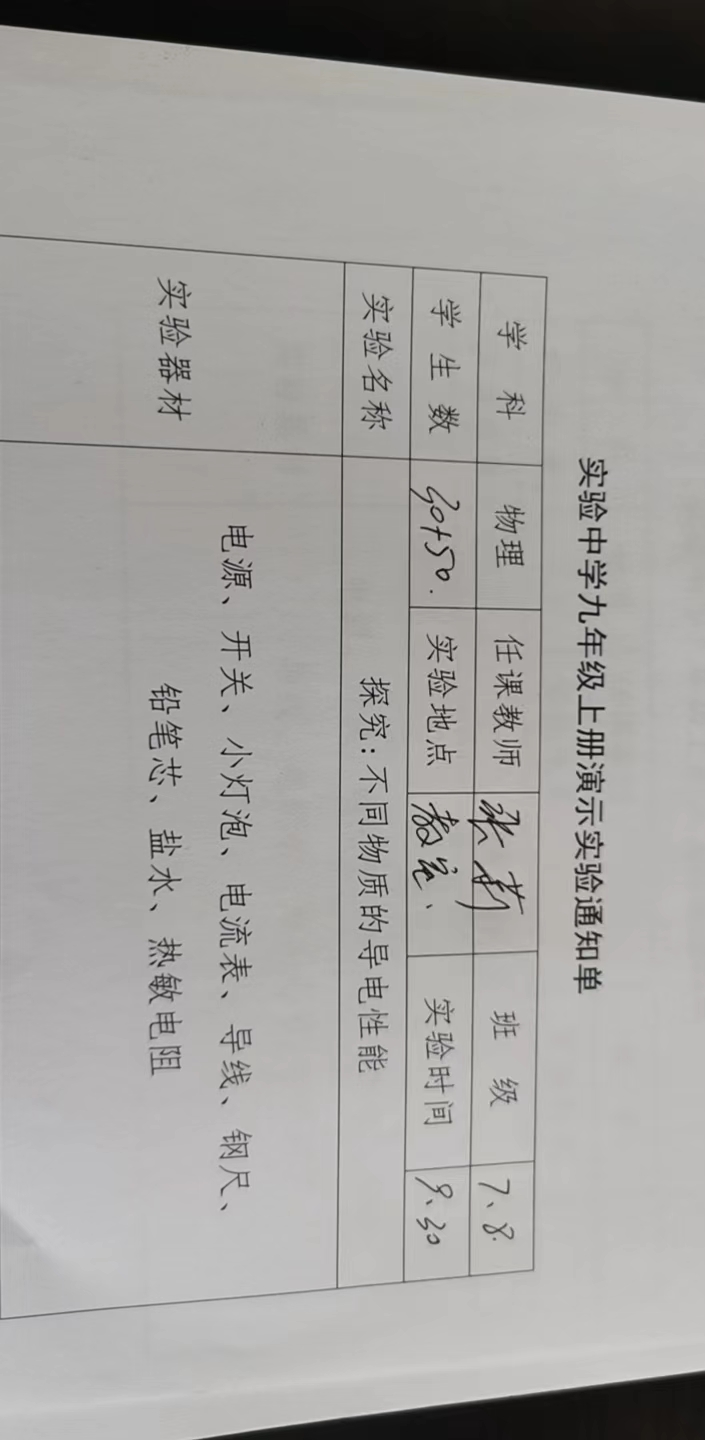 实验中学九年级上册演示实验通知单
学 科 物理 任课教师 张莉 班 级 7、8.
学 生 数 50+50. 实验地点 教室. 实验时间 9.30
实验名称 探究:不同物质的导电性能
实验器材 电源、开关、小灯泡、电流表、导线、钢尺、
铅笔芯、盐水、热敏电阻